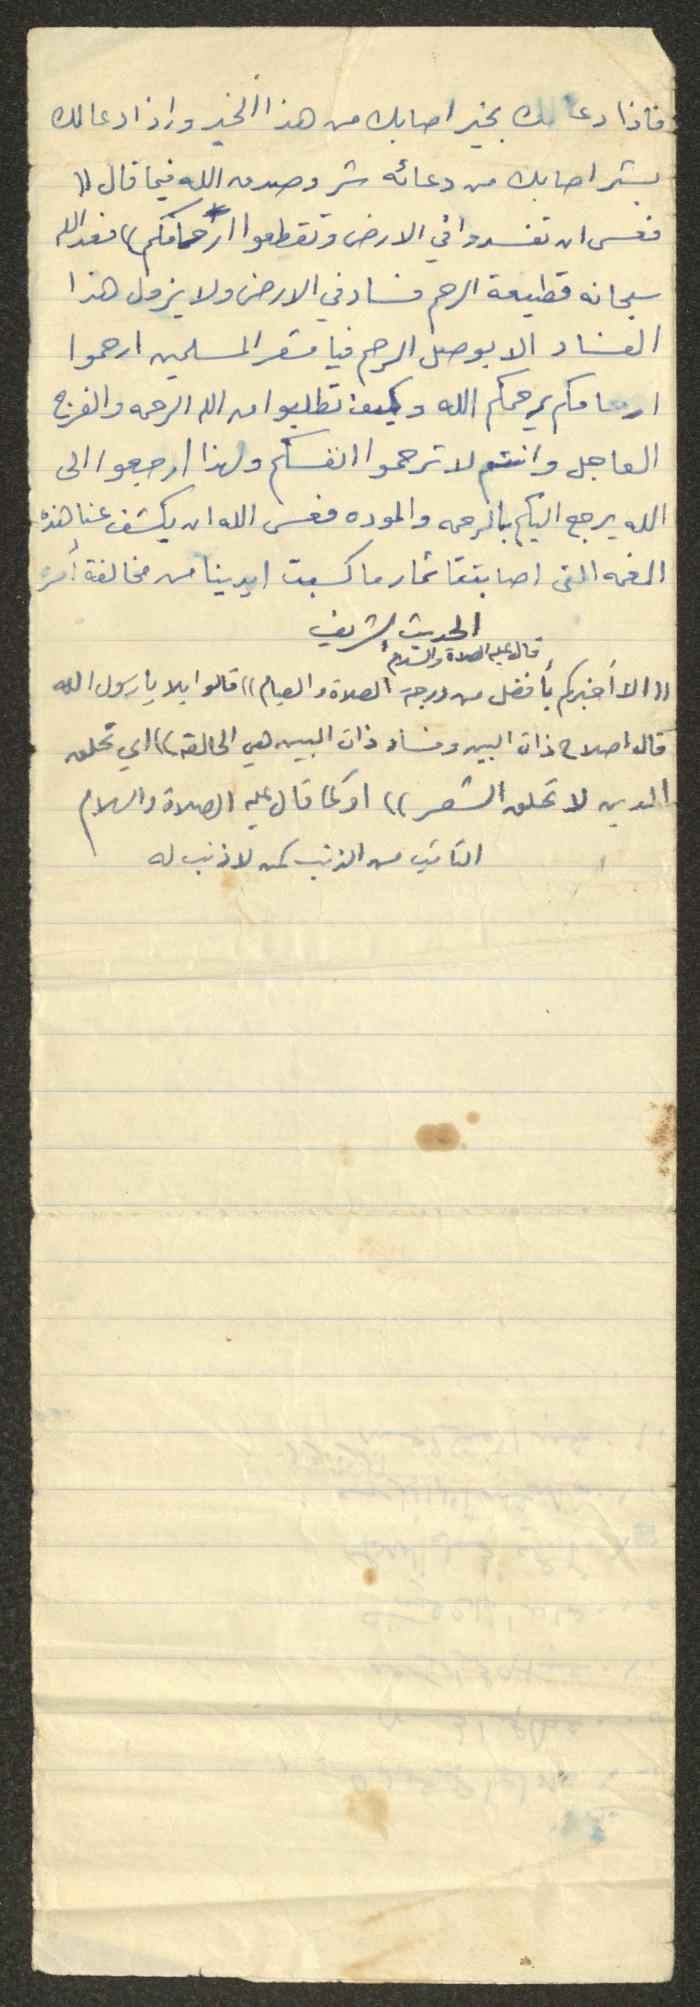 فاذا دعا لك بخير اصابك من هذا الخير واذا دعا لك
بشر اصابك من دعائه شر وصدق الله فيما قال ((
فعسى ان تفسدوا في الارض وتقطعوا ارحامكم)) فعد الله
سبحانه قطيعة الرحم فساد في الارض ولا يزول هذا
الفساد الا بوصل الرحم فيا معشر المسلمين ارحموا
ارحامكم يرحمكم الله وكيف تطلبوا من الله الرحمه والفرج
العاجل وانتم لا ترحموا انفسكم ولهذا ارجعوا الى
الله يرجع اليكم بالرحمه والموده فعسى الله ان يكشف عنا هذه
الغمه التي اصابتنا ثمار ما كسبت ايدينا من مخالفة أمره
الحديث الشريف
قال عليه الصلاة والسلام
((الا أخبركم بأفضل من درجة الصلاة والصيام)) قالوا بلا يا رسول الله
قال اصلاح ذات البين وفساد ذات البين هي الحالقة)) اي تحلق
الدين لا تحلق الشعر)) او كما قال عليه الصلاة والسلام
التائب من الذنب كمن لا ذنب له